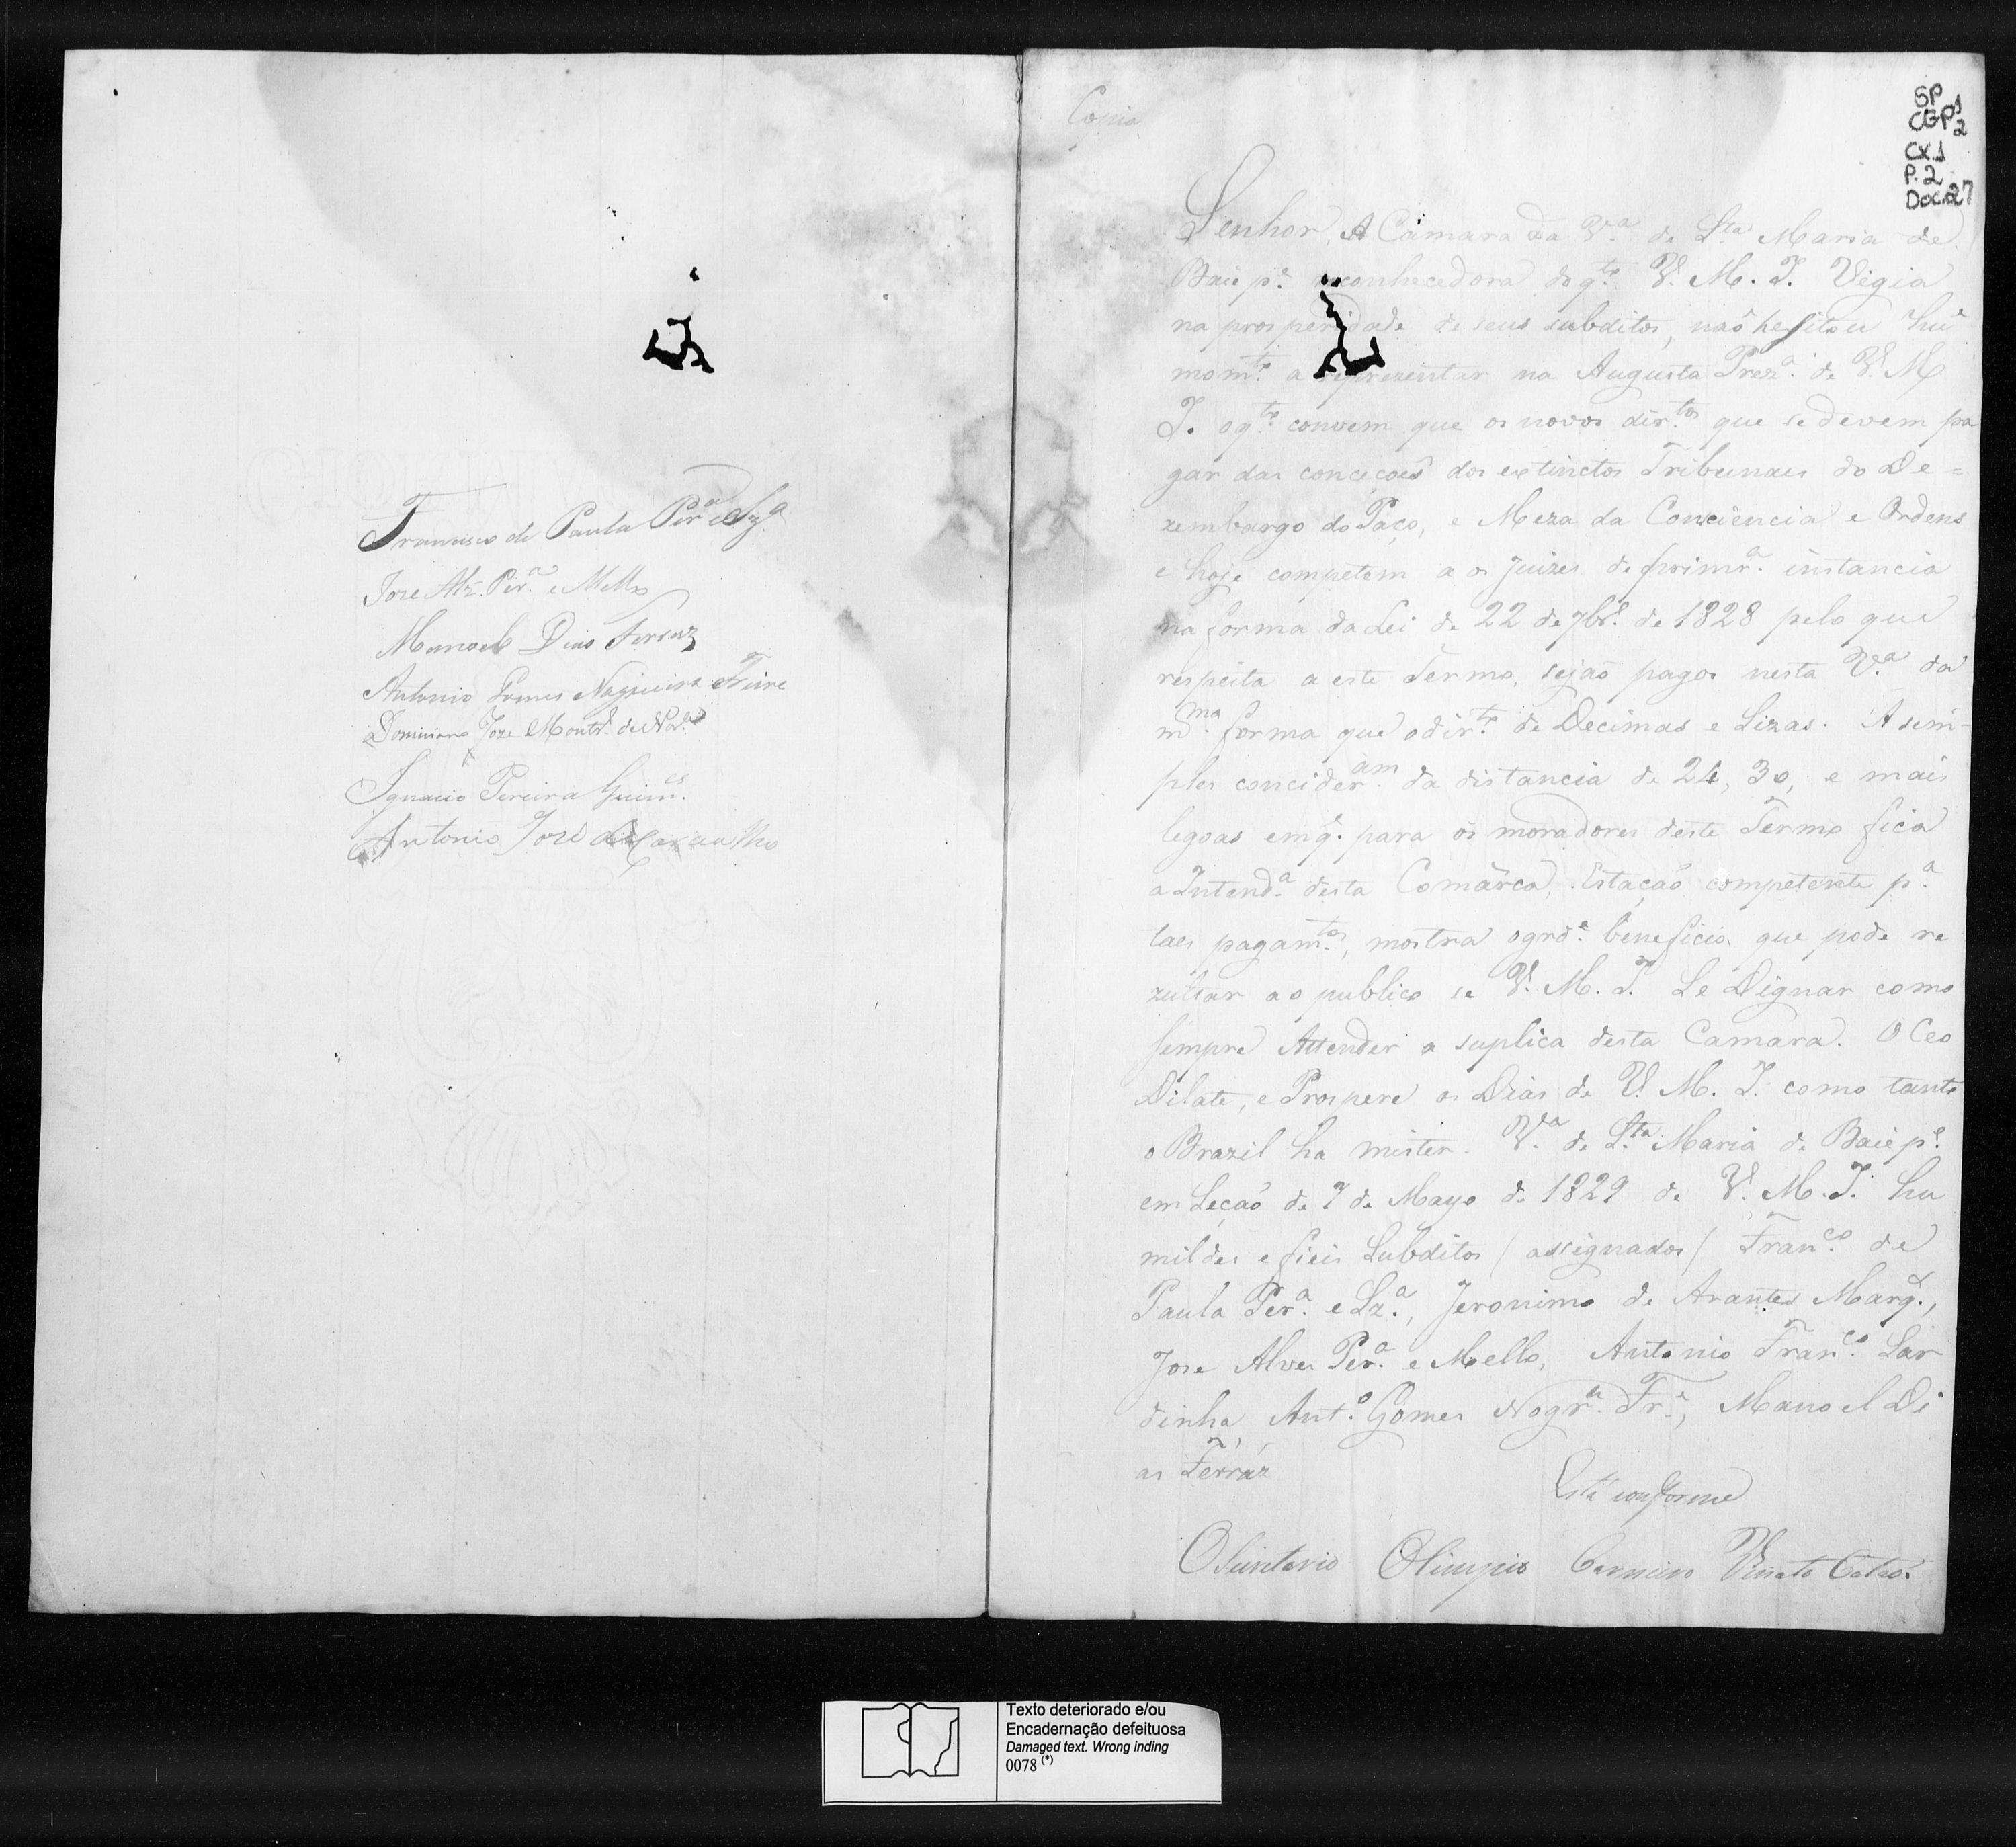 Francisco de Paula Per.ª e Sz.ª
Joze Alz. Per.ª e Mello
Manoel Dias Ferraz
Antonio Gomes Nogueira Freire
Joze Montr.º de Nor.ª
Ignacio Pereira Guim.es
Antonio José de Carvalho
Copia
SP
CGP 1
2
CX.1
P. 2
Doc. 27
Senhor. A Camara da V.ª de S.ta Maria de
Baiep.e reconhecedora do q.to V. M. I. Vigia
na prosperidade de seus subditos, naõ hesitou hũ
mom.to a reprezentar na Augusta Prez.ª de V. M
I. o q.to convem que os novos dir.tos que se devem pa
gar das conceçoẽs dos extinctos Tribunaes do De=
zembargo do Paço, e Meza da Conciencia e Ordens
e hoje competem a os Juizes de primr.ª instancia
na forma da Lei de 22 de 7br.º de 1828 pelo que
respeita a este Termo, sejaõ pagos nesta V.ª da
m.ma forma que o dir.to de Decimas e Sizas. A sim-
ples concider.am da distancia de 24, 30, e mais
legoas em q. para os moradores deste Termo fica
a Intend.ª desta Comarca, Estaçaõ competente p.ª
taes pagam.tos, mostra o grd.e beneficio que pode re
zultar ao publico se V. M. I. Se Dignar como
sempre Attender a suplica desta Camara. O Ceo
Dilate, e Prospere os Dias de V. M. I. como tanto
o Brazil ha mister. V.ª de S.ta Maria de Baiep.e
em Seçaõ de 7 de Mayo de 1829 de V. M. I. hu
mildes e fieis Subditos / assignados / Fran.co de
Paula Per.ª e Sz.ª, Jeronimo de Arantes Marq.,
Jose Alves Per.ª e Mello, Antonio Fran.co Lar
dinha, Ant.º Gomes Nogr.ª Fr.e, Manoel Di
as Ferraz
Está conforme
Olimpio Carneiro
Texto deteriorado e/ou
Encadernação defeituosa
Damaged text. Wrong inding
0078 (*)